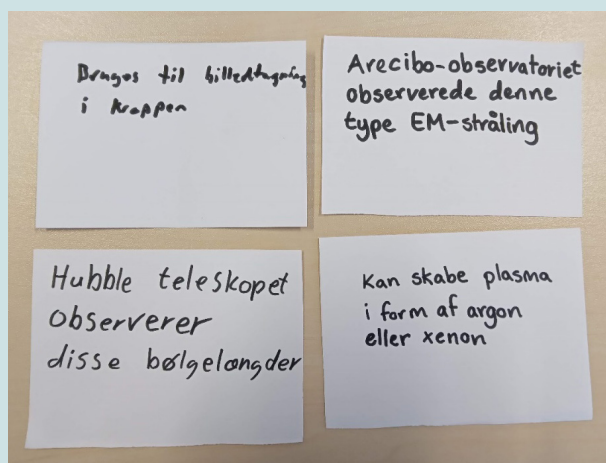 Bruges til billedtagning
i kroppen
Arecibo-observatoriet
observerede denne
type EM-stråling
Hubble teleskopet
observerer
disse bølgelængder
Kan skabe plasma
i form af argon
eller xenon